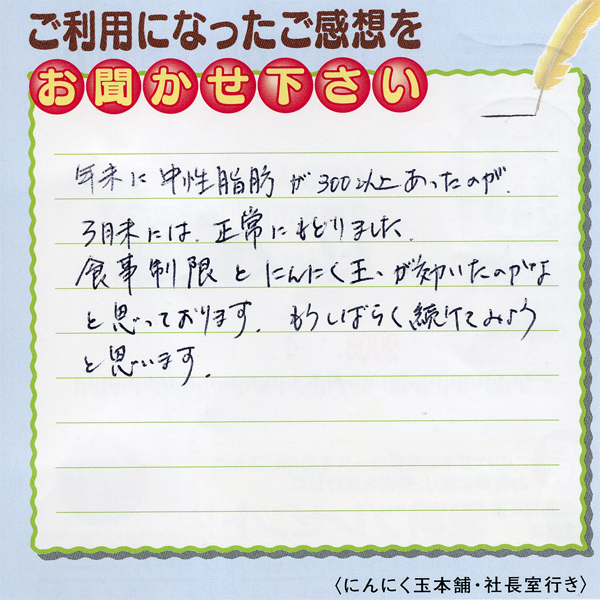 ご利用になったご感想を
お聞かせ下さい
年末に中性脂肪が300以上あったのが、
3月末には、正常にもどりました。
食事制限とにんにく玉、が効いたのがな
と思っております。もうしばらく続けてみよう
と思います。
〈にんにく玉本舗・社長室行き〉